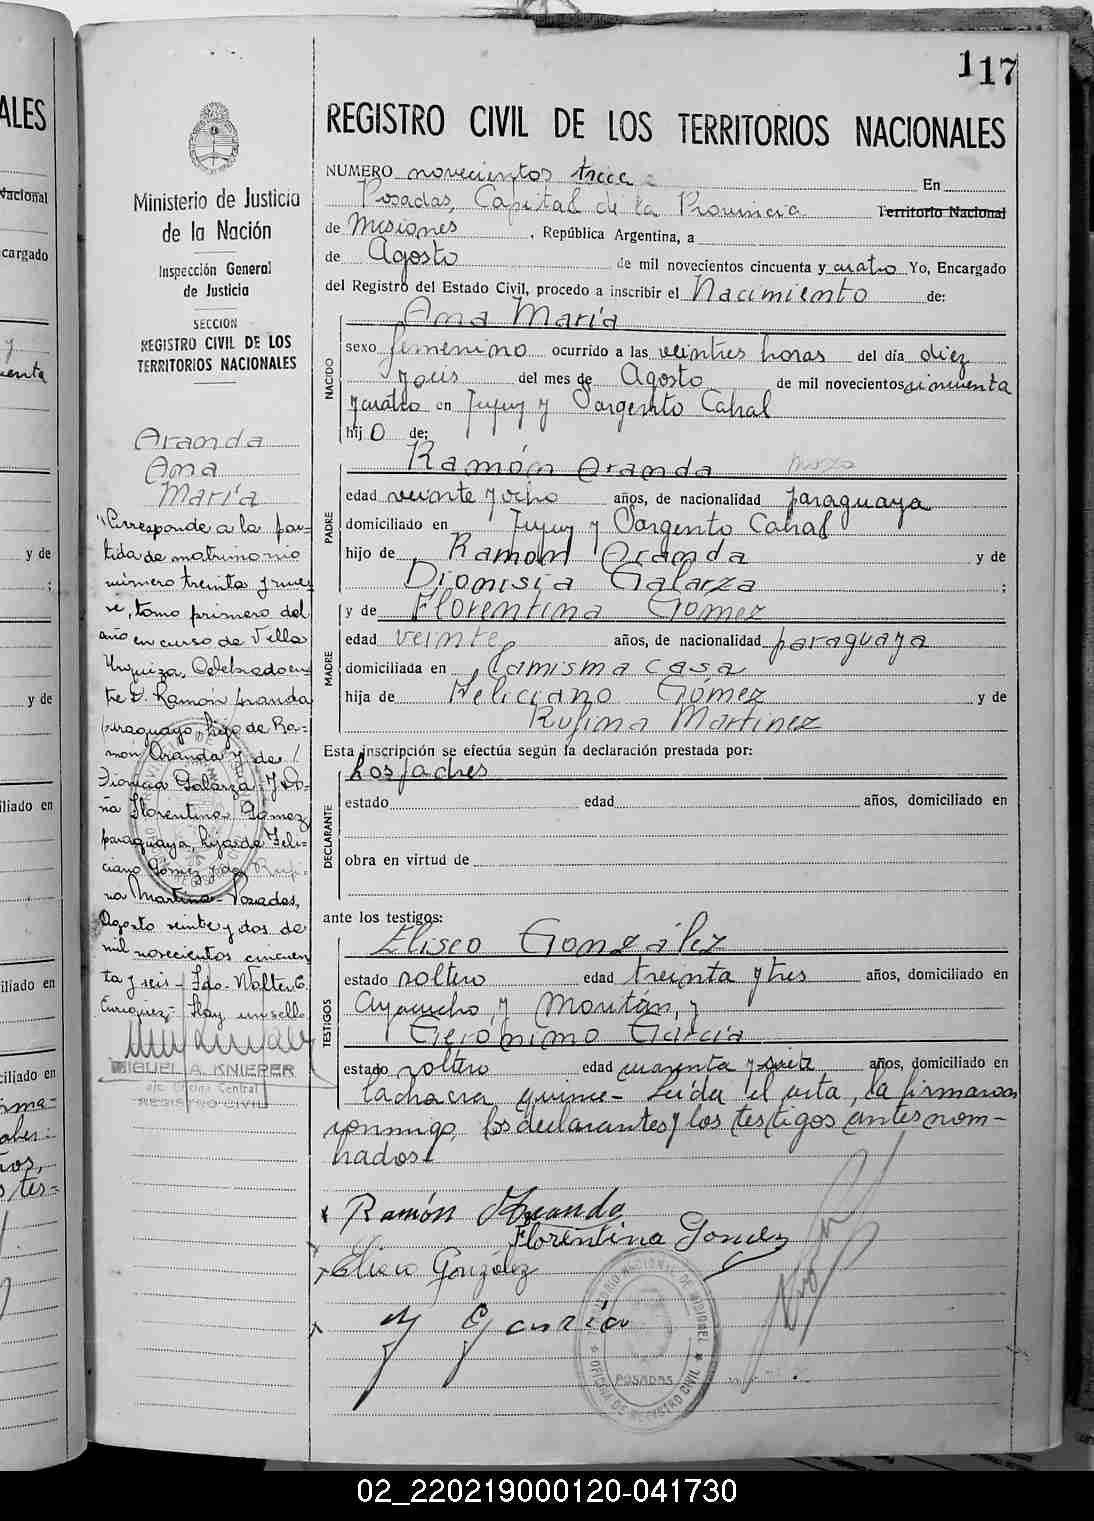 117
REGISTRO CIVIL DE LOS TERRITORIOS NACIONALES
Ministerio de Justicia
de la Nación
Inspección General
de Justicia
SECCION
REGISTRO CIVIL DE LOS
TERRITORIOS NACIONALES
Aranda
Ana
María
Corresponde a la par-
tida de matrimonio
número treinta y nue-
ve, tomo primero del
año en curso de Villa
Urquiza, Celebrado en-
tre D. Ramón Aranda
paraguayo, hijo de Ra-
món Aranda y de
Dionicia Galarza y Do-
ña Florentina Gomez
paraguaya, hija de Feli-
ciano Gómez y de Rufi-
na Martinez - Posadas,
Agosto veinte y dos de
mil novecientos cincuen
ta y seis - Fdo. Walter C.
Enriquez - Hay un sello
MIGUEL A. KNIEPER
a/c Oficina Central
REGISTRO CIVIL
NUMERO novecientos trece En
Posadas, Capital de la Provincia Territorio Nacional
de Misiones, República Argentina, a
de Agosto de mil novecientos cincuenta y cuatro Yo, Encargado
del Registro del Estado Civil, procedo a inscribir el Nacimiento de:
NACIDO
Ana María
sexo femenino ocurrido a las veintres horas del día diez
y seis del mes de Agosto de mil novecientos cincuenta
y cuatro en Jujuy y Sargento Cabral
hij a de:
PADRE
Ramón Aranda
edad veinte y ocho años, de nacionalidad paraguaya
domiciliado en Jujuy y Sargento Cabral
hijo de Ramón Aranda y de
Dionisia Galarza ;
MADRE
y de Florentina Gomez
edad veinte años, de nacionalidad paraguaya
domiciliada en la misma casa
hija de Feliciano Gómez y de
Rufina Martinez
Esta inscripción se efectúa según la declaración prestada por:
DECLARANTE
Los padres
estado edad años, domiciliado en
obra en virtud de
ante los testigos:
TESTIGOS
Eliseo González
estado soltero edad treinta y tres años, domiciliado en
Ayacucho y Moritán, y
Gerónimo García
estado soltero edad cuarenta y siete años, domiciliado en
la chacra quince - Leída el acta, la firmaron
conmigo, los declarantes y los testigos antes nom-
brados
Ramón Aranda
Florentina Gomez
Eliseo González
J García
OFICINA DE REGISTRO CIVIL
POSADAS
02_220219000120-041730